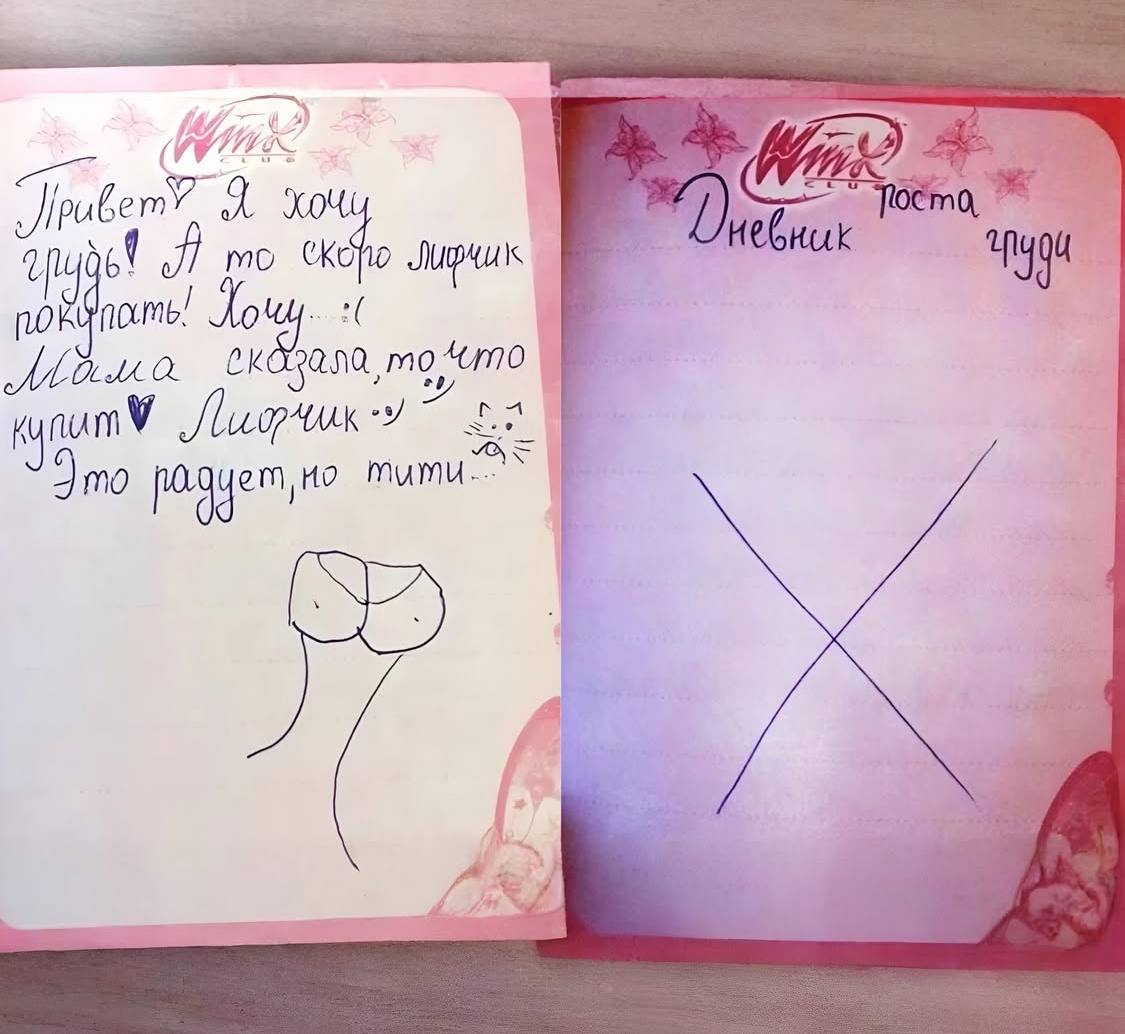 Winx
CLUB
Привет♡ Я хочу
грудь! А то скоро лифчик
покупать! Хочу... :(
Мама сказала, то что
купит♥ Лифчик :)
Это радует, но тити...
Winx
CLUB
Дневник роста груди